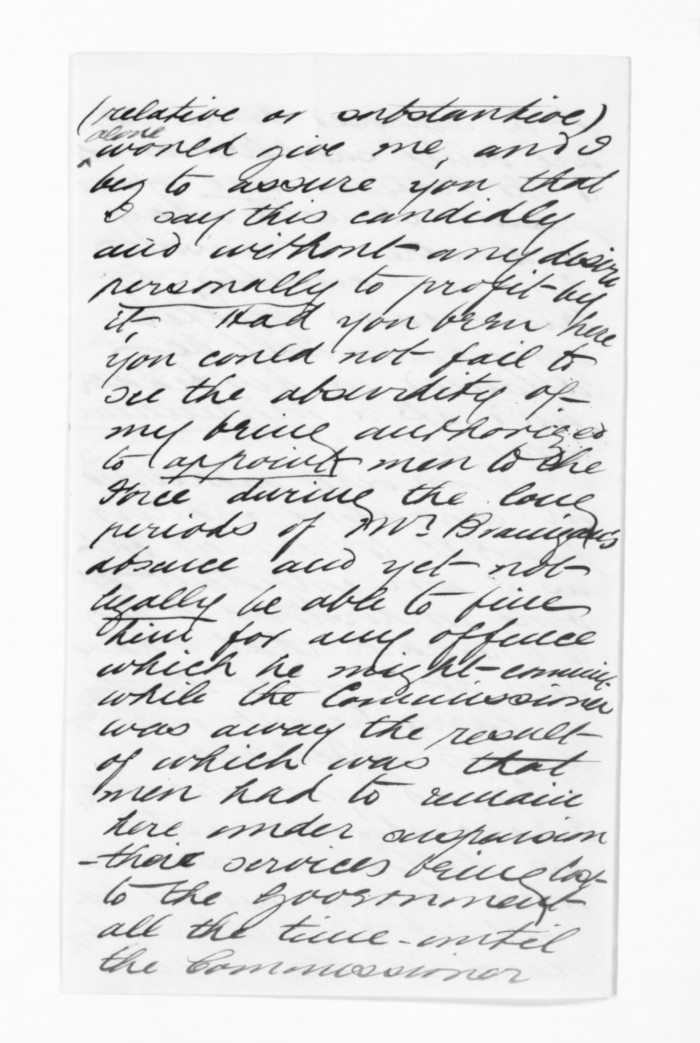 (relative or substantive)
alone
would give me, and I
beg to assure you that
I say this candidly
and without any desire
personally to profit by
it. Had you been here
you could not fail to
see the absurdity of
my being authorized
to appoint men to the
Force during the long
periods of Mr. Branigan's
absence and yet not
legally be able to fine
him for any offence
which he might commit
while the Commissioner
was away the result
of which was that
men had to remain
here under suspension
- their services being lost
to the Government
all the time - until
the Commissioner